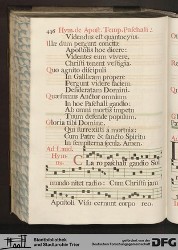 Hym. de Apost. Temp. Paschali:
Videndus est quantocyus.
Illæ dum pergunt concitæ
Apostolis hoc dicere:
Videntes eum vivere,
Osculi tenent veſtigia.
Quo agnito diſcipuli
In Galilæam propere
Pergunt videre faciem
Deſideratam Domini.
Quæſumus Author omnium
In hoc Paſchali gaudio:
Ab omni mortis impetu
Tuum defende populum.
Gloria tibi Domine,
Qui ſurrexiſti à mortuis:
Cum Patre & ſancto Spiritu
In ſempiterna ſæcla. Amen.
Ad Laud.
Hym
nus
La ro paſchali gaudio Sol
mundo nitet radio: Cum Chriſtũ jam
Apoſtoli Viſu cernunt corpo reo.
DFG